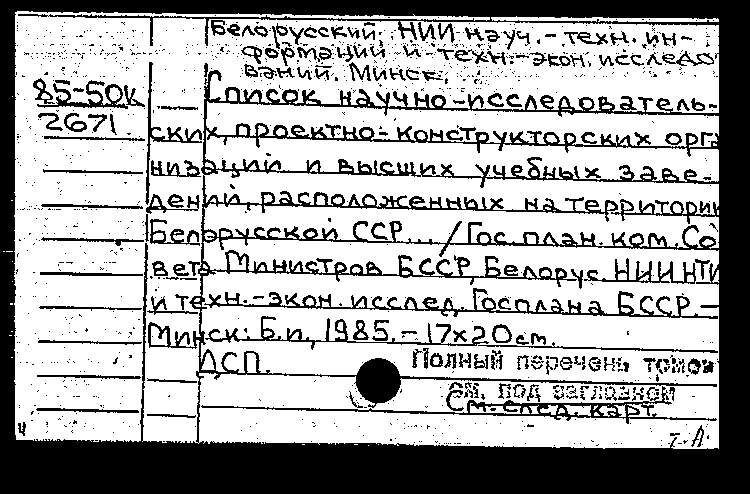 Белорусский НИИ науч.-техн. ин-
формации и техн.-экон. исследо
ваний. Минск.
85-50К
2671
Список научно-исследователь-
ских, проектно-конструкторских орга
низаций и высших учебных заве-
дений, расположенных на территории
Белорусской ССР... / Гос. план. ком. Со
вета Министров БССР, Белорус. НИИ НТИ
и техн.-экон. исслед. Госплана БССР. —
Минск: Б.и., 1985. - 17x20 см.
ДСП.
Полный перечень томов
см. под заглавном
См. след. карт.
Т-А